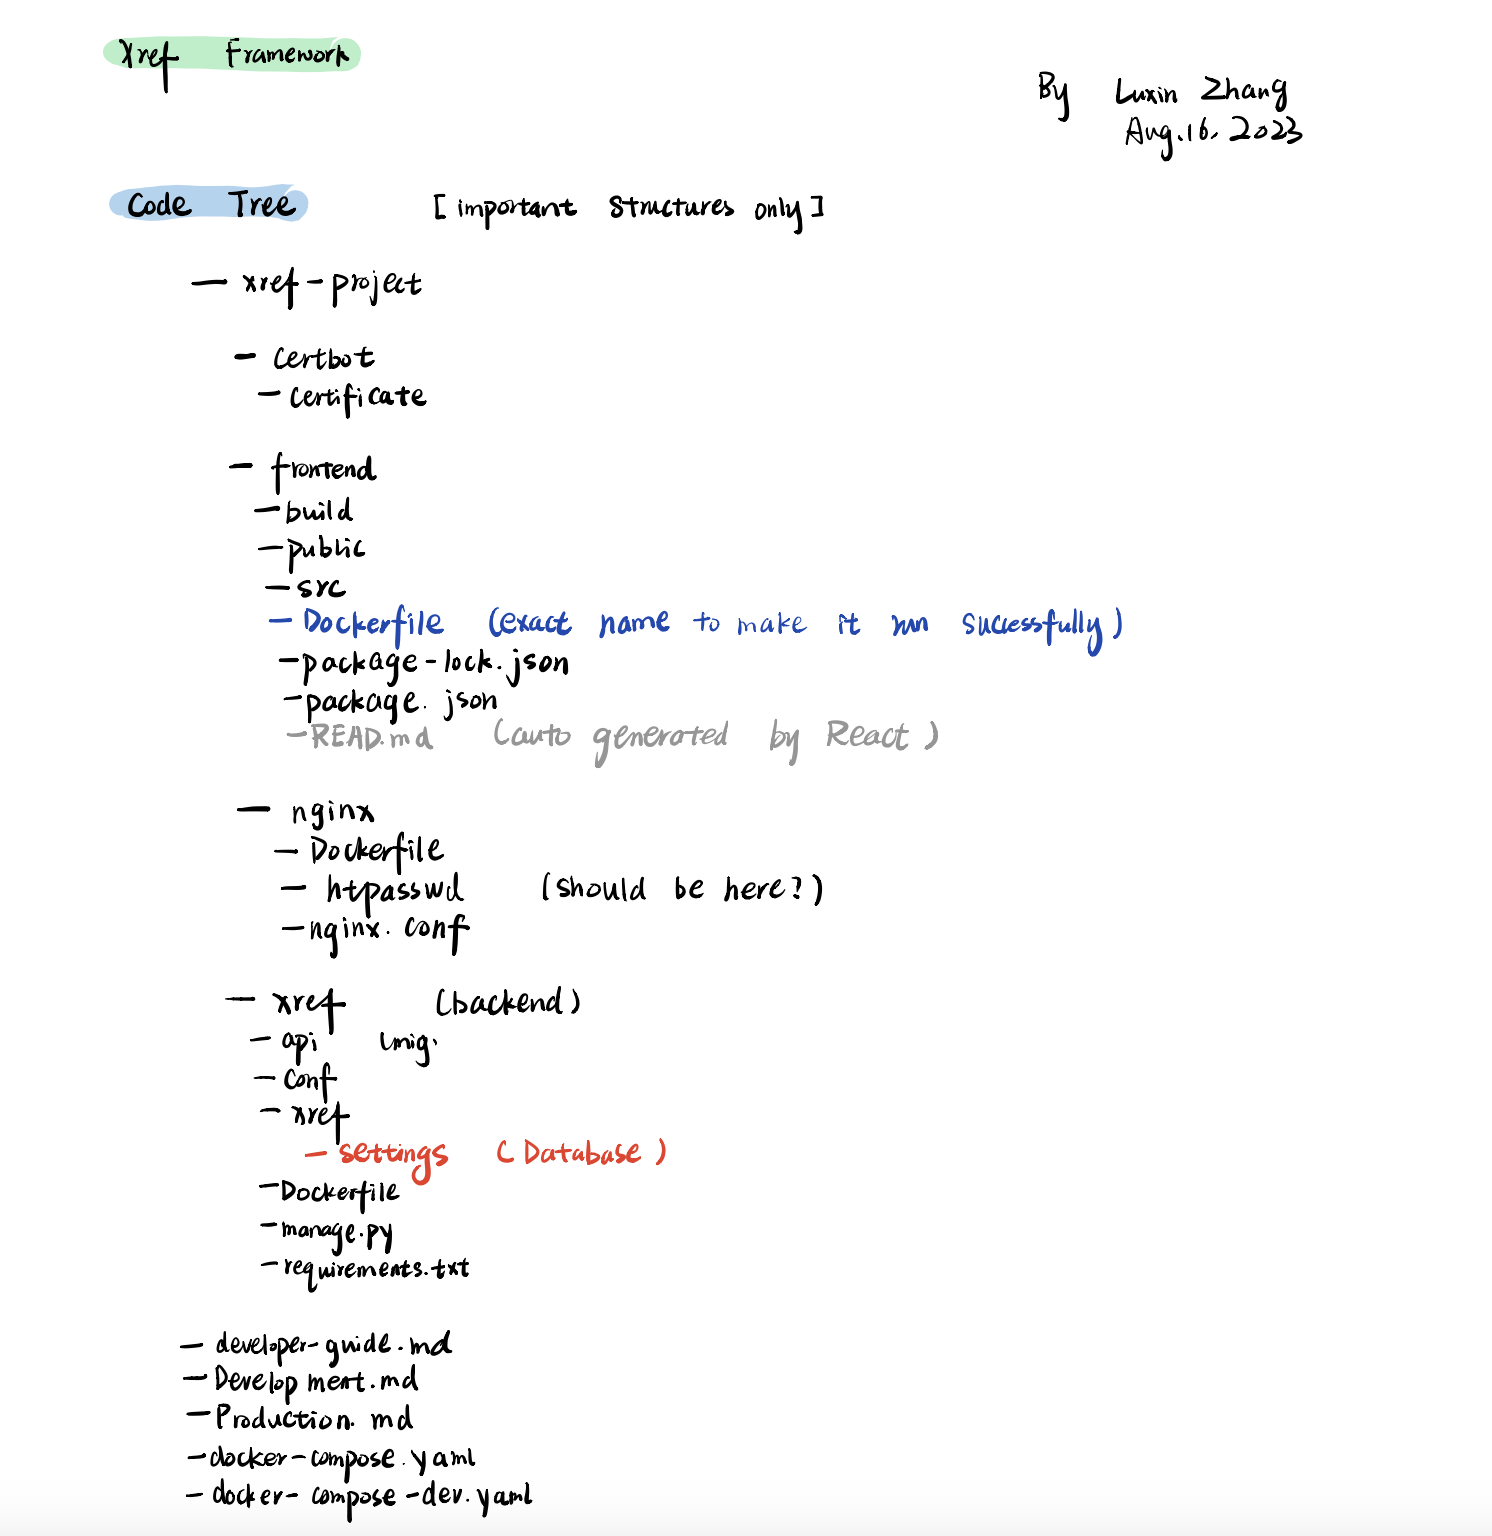 Xref Framework
By Luxin Zhang
Aug.16.2023
Code Tree [important structures only]
— xref-project
- Certbot
- Certificate
- frontend
- build
- public
- src
- Dockerfile (exact name to make it run successfully)
- package-lock.json
- package.json
- READ.md (auto generated by React)
- nginx
- Dockerfile
- htpasswd (should be here?)
- nginx.conf
- xref (backend)
- api (mig.
- conf
- xref
- settings (Database)
- Dockerfile
- manage.py
- requirements.txt
- developer-guide.md
- Development.md
- Production.md
- docker-compose.yaml
- docker-compose-dev.yaml